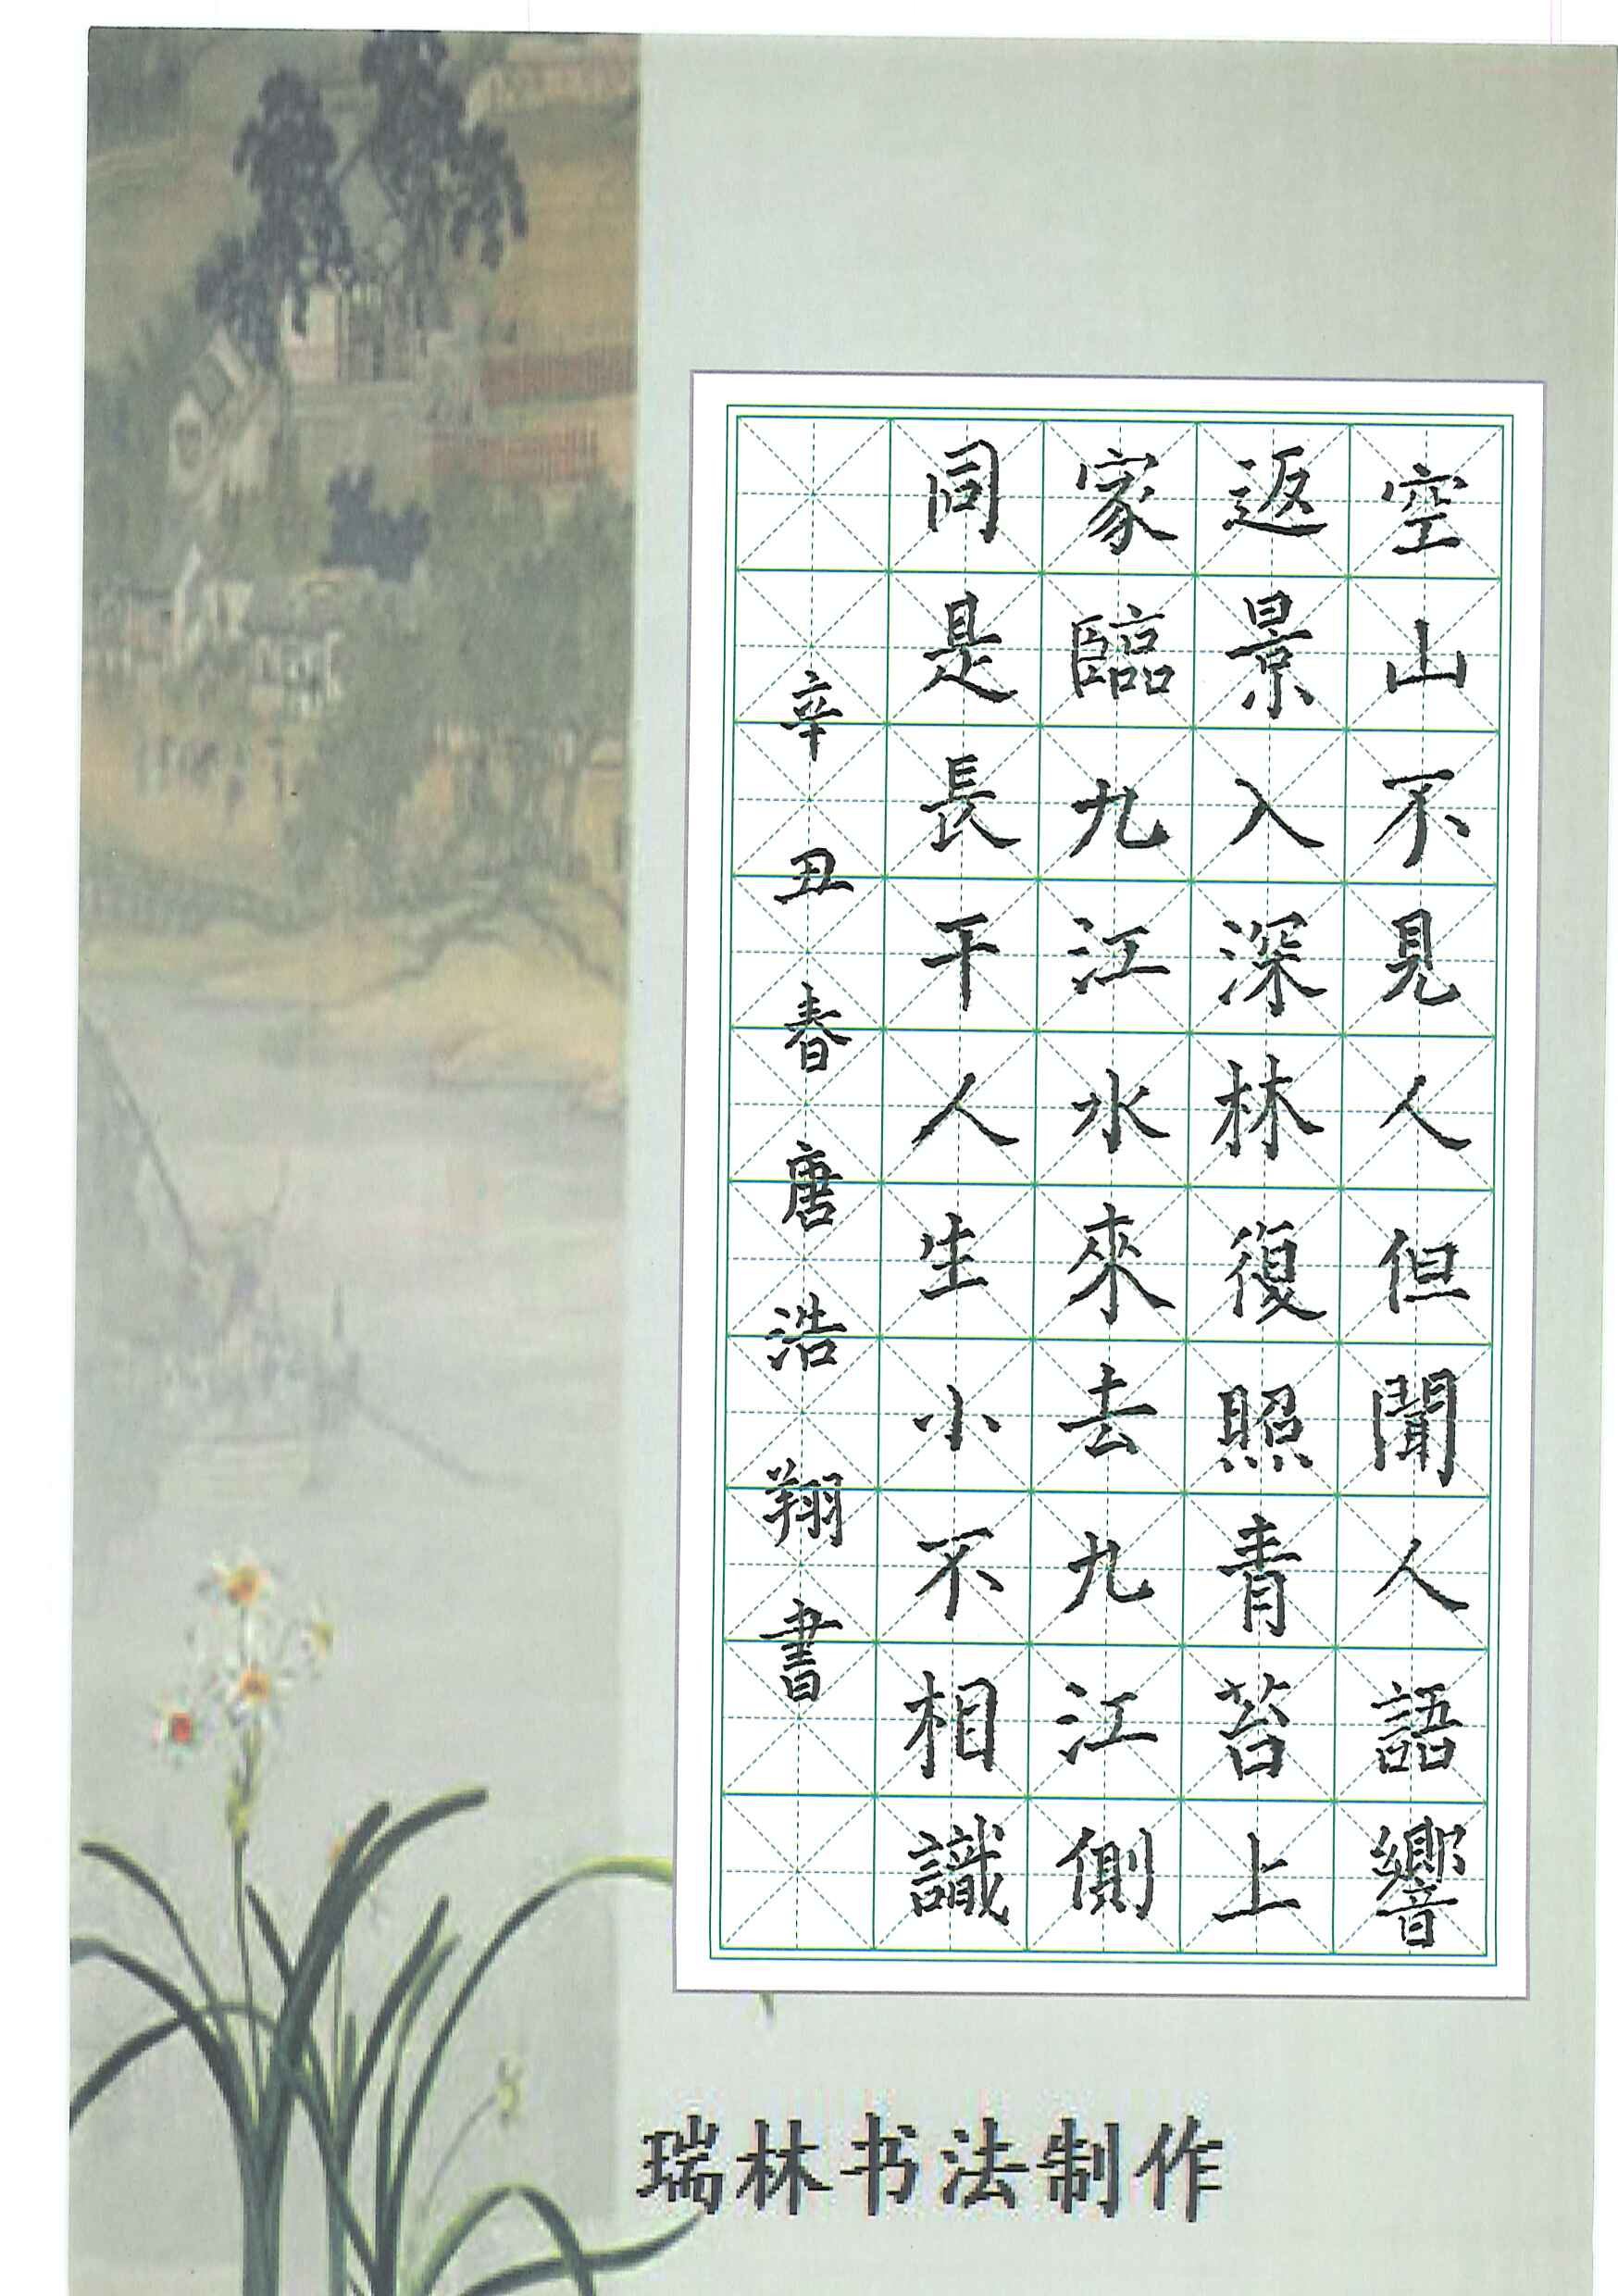 空山不見人但聞人語響
返景入深林復照青苔上
家臨九江水來去九江側
同是長干人生小不相識
辛丑春唐浩翔書
瑞林书法制作